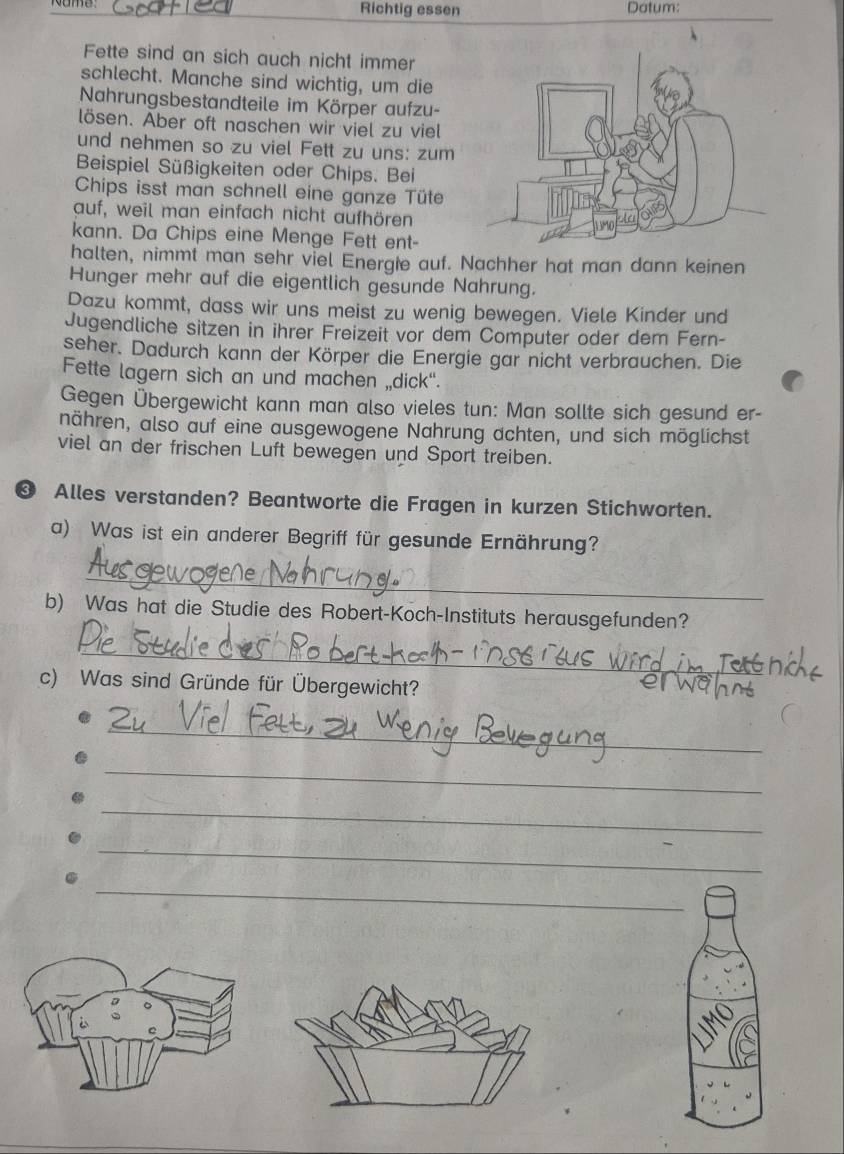 Name: Goatled
Richtig essen
Datum:
Fette sind an sich auch nicht immer
schlecht. Manche sind wichtig, um die
Nahrungsbestandteile im Körper aufzu-
lösen. Aber oft naschen wir viel zu viel
und nehmen so zu viel Fett zu uns: zum
Beispiel Süßigkeiten oder Chips. Bei
Chips isst man schnell eine ganze Tüte
auf, weil man einfach nicht aufhören
kann. Da Chips eine Menge Fett ent-
halten, nimmt man sehr viel Energie auf. Nachher hat man dann keinen
Hunger mehr auf die eigentlich gesunde Nahrung.
Dazu kommt, dass wir uns meist zu wenig bewegen. Viele Kinder und
Jugendliche sitzen in ihrer Freizeit vor dem Computer oder dem Fern-
seher. Dadurch kann der Körper die Energie gar nicht verbrauchen. Die
Fette lagern sich an und machen „dick“.
Gegen Übergewicht kann man also vieles tun: Man sollte sich gesund er-
nähren, also auf eine ausgewogene Nahrung achten, und sich möglichst
viel an der frischen Luft bewegen und Sport treiben.
LIMO
CHIPS
3 Alles verstanden? Beantworte die Fragen in kurzen Stichworten.
a) Was ist ein anderer Begriff für gesunde Ernährung?
Ausgewogene Nahrung.
b) Was hat die Studie des Robert-Koch-Instituts herausgefunden?
Die Studie des Robert-koch-institus wird im Text nicht
erwähnt
c) Was sind Gründe für Übergewicht?
Zu Viel Fett, zu Wenig Bewegung
LIMO